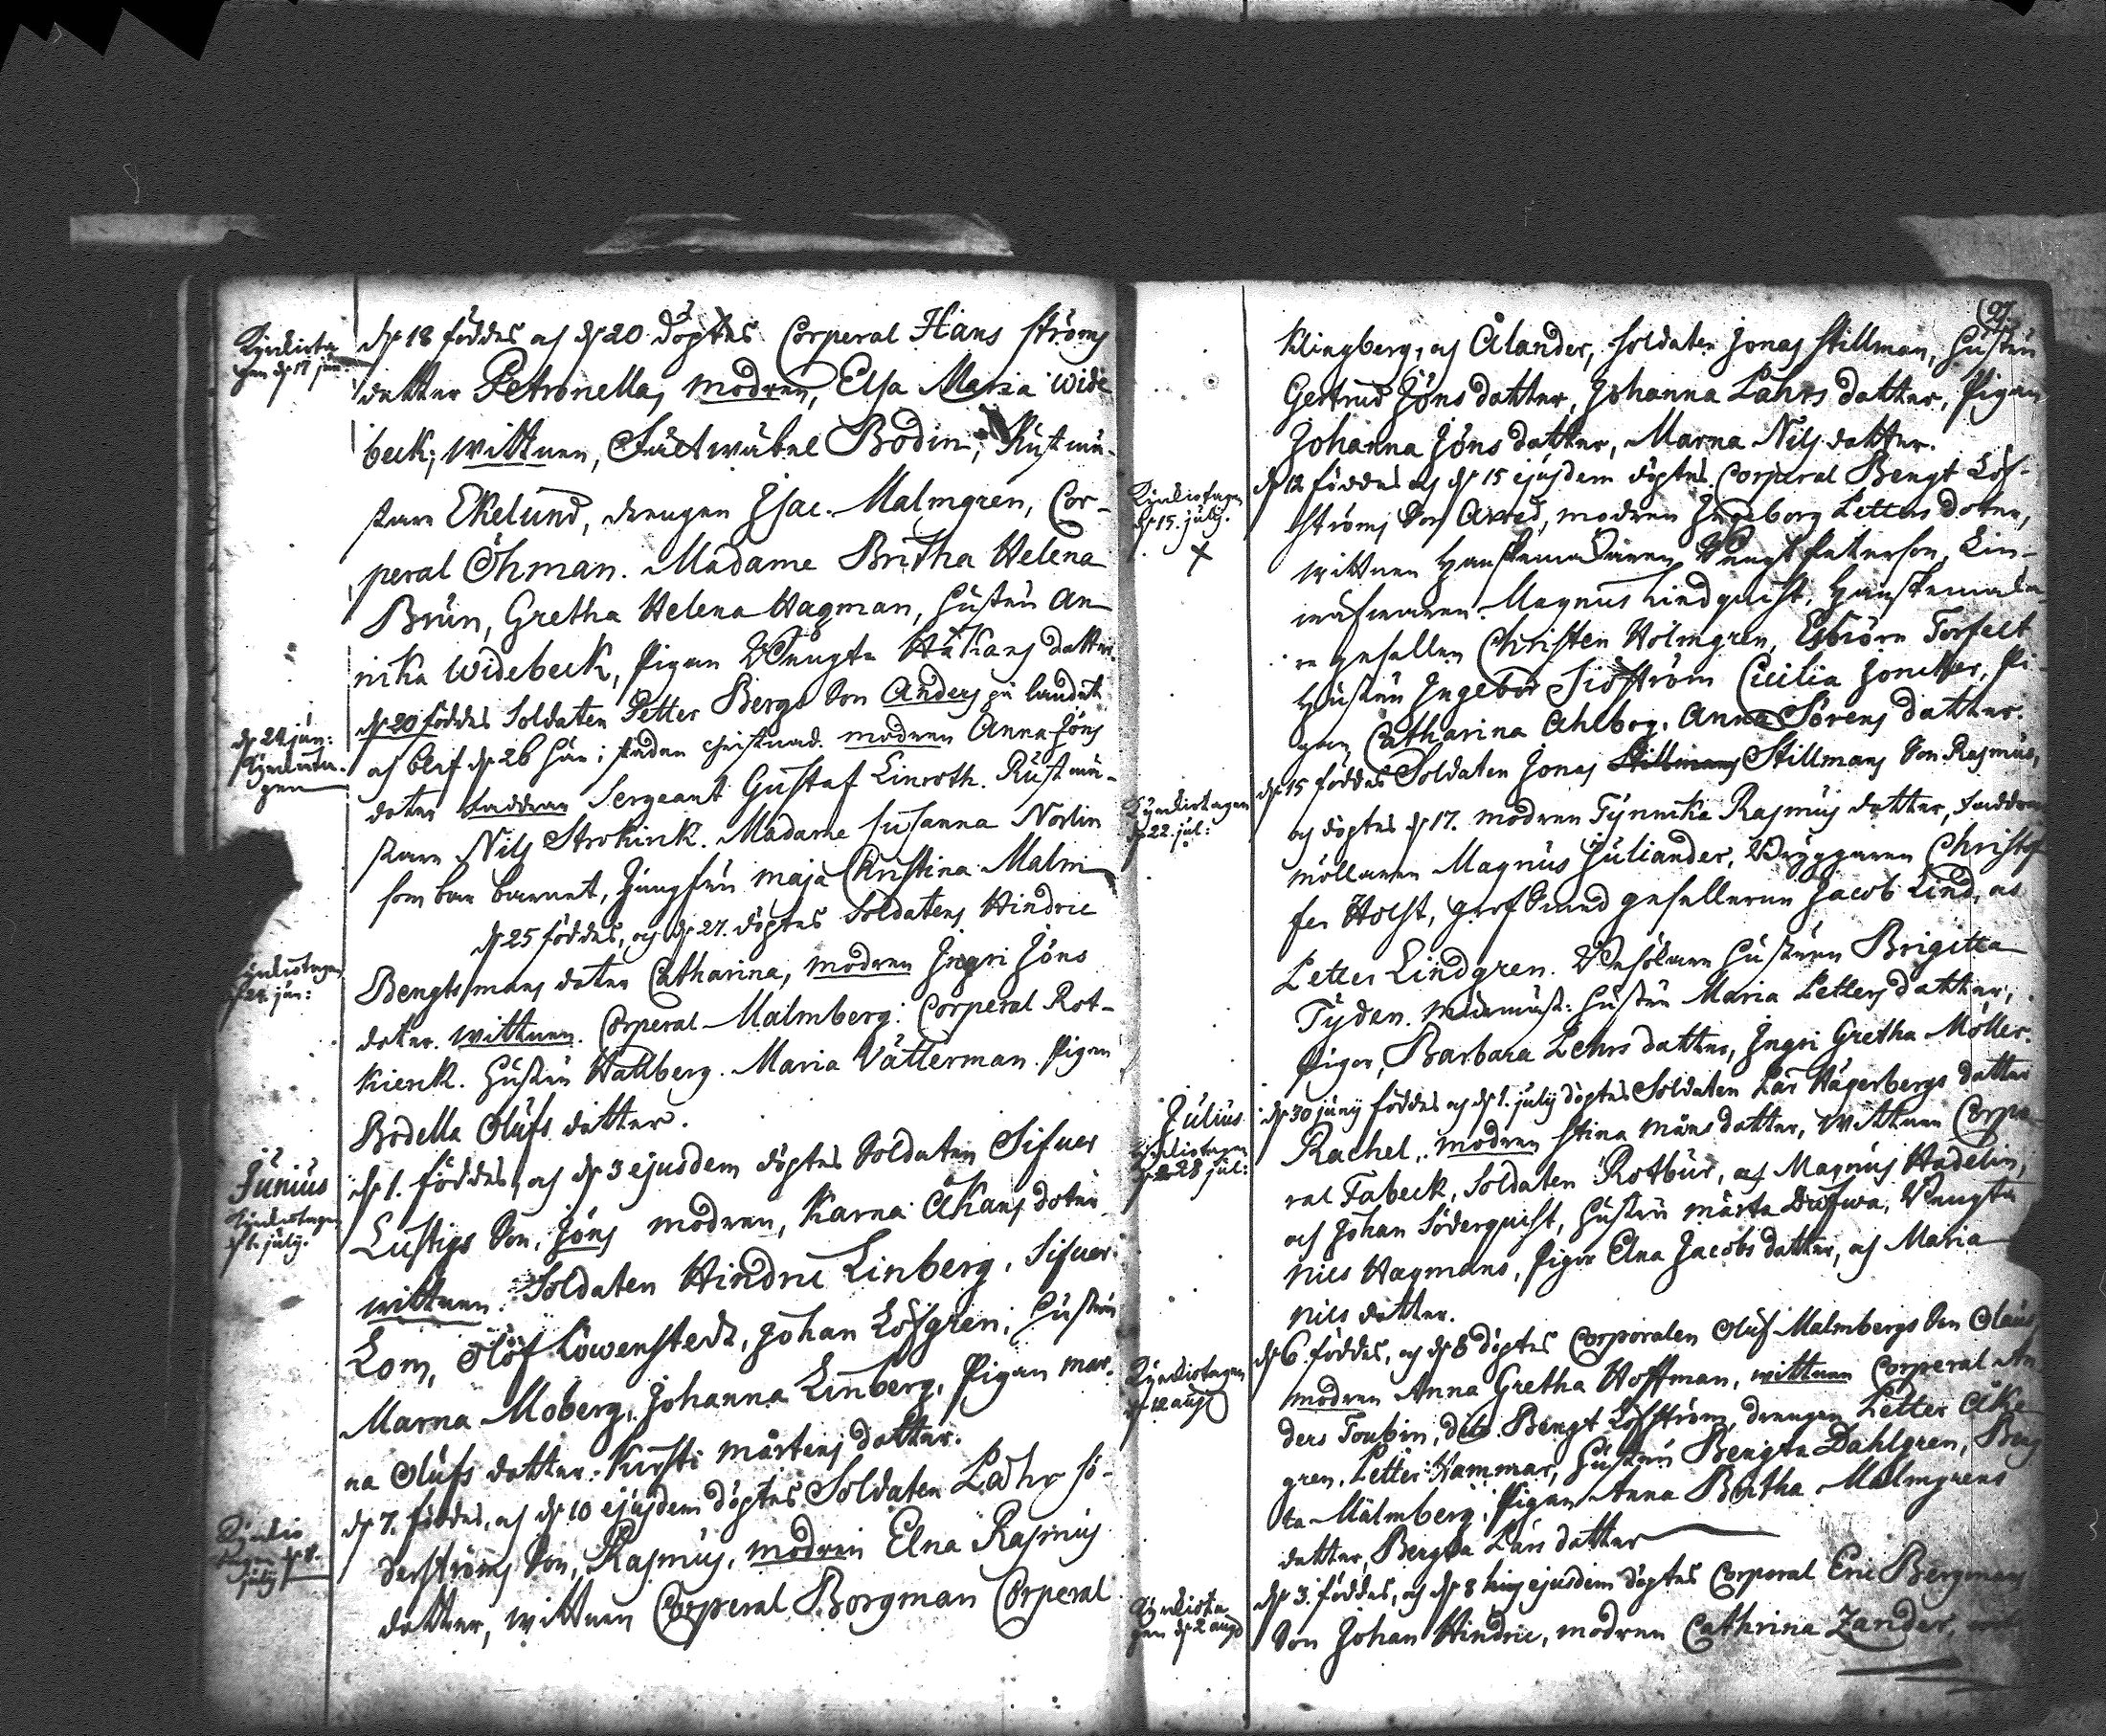 Kyrkiota
gen d 17 jun:
d 18 föddes och d 20 döptes Corperal Hans Ströms
dotter Petronella, modren, Elsa Maria Wide
beck; wittnen, Fältwäbel Bodin, Rustmä-
staren Ekelund, drengen Isac Malmgren, Cor-
peral Öhman. Madame Britha Helena
Brun, Gretha Helena Hagman, hustru An
nika Widebeck, pigan Bengta Håkans dotter.
d 24 jun:
Kyrkiota-
gen
d 20 föddes Soldaten Petter Bergs Son Anders på landet
och blef d 26 här i staden christnad. modren Anna Jöns
doter faddrar Sergeant Gustaf Linroth. Rustmä-
staren Nils Strokirk. Madame Susanna Norlin
som bar barnet, Jungfru Maja Christina Malm
Kyrkiotagen
d 24 jun:
d 25 föddes, och d 27. döptes Soldatens Hindric
Bengtsmans doter Catharina, modren Ingri Jöns
doter. wittnen. Corperal Malmberg: Corperal Rot-
kierk. Hustru Hallberg. Maria Vätterman. Pigan
Bodella Olufs dotter.
Junius
Kyrkiotagen
d 1. july.
d 1. föddes, och d 3 ejusdem döptes Soldaten Sifuer
Lustigs Son, Jöns modren, Karna Åkans doter
wittnen. Soldaten Hindric Linberg, Sifuer
Lom, Olöf Löwenstedt, Johan Löfgren, Hustru
Marna Moberg, Johanna Linberg, Pigan Mar-
na Olufs dotter: Kirsti Mårtens dotter.
Kyrkio
tagen d 8.
july
d 7. föddes, och d 10 ejusdem döptes Soldaten Lahr Sö-
derströms Son, Rasmus, modren Elna Rasmus
dotter, wittnen Corperal Borgman Corperal
Klingberg, och Ålander, Soldaten Jonas Stillman, Hustru
Gertrud Jöns dotter, Johanna Lahrs dotter, Pigan
Johanna Jöns dotter, Marna Nils dotter.
Kyrkiotagen
d 15. july.
d 12 föddes och d 15 ejusdem döptes Corperal Bengt Löf-
ströms Son Axted, modren Ingeborg Petters doter,
wittnen Handskemakaren Bengt Peterson, Lin-
wäfwaren Magnus Lindquist, Handskemaka
re gesellen Christen Holmgren, Esbiörn Torfelt
Hustru Ingebor Siöström Cicilia Joncker, Pi-
gan Catharina Ahlbog, Anna Sörens dotter.
Kyrkiotagen
d 22. jul:
d 15 föddes Soldaten Jonas Stillmans Stillmans Son Rasmus,
och döptes d 17. modren Tynnika Rasmus dotter, faddrar
möllaren Magnus Juliander, Bryggaren Christof
fer Holst, gesellerne Jacob Lind, och
Petter Lindgren. Hustrun Brigitta
Tyden. Hustru Maria Petters dotter,
Pigor, Barbara Lehrs dotter, Ingri Gretha Möller.
Julius
Kyrkiotagen
d 28 jul:
d 30 juny föddes och d 1. july döptes Soldaten Lar Hägerbergs dotter
Rachel, modren Stina Måns dotter, wittnen Corpo
ral Fabeck, Soldaten Rotbur, och Magnus Hadelin,
och Johan Söderquist, Hustru Märta Dufwa, Bengta
Nils Hagmans, Pigor Elna Jacobs dotter, och Maria
Nils dotter.
Kyrkiotagen
d 12 aug
d 6. föddes, och d 8 döptes Corporalen Oluf Malmbergs Son Olaus
modren Anna Gretha Hoffman, wittnen Corperal An
ders Toubin, dito Bengt Löfström, drengen Petter Åke
gren, Petter Hammar, Hustru Bengta Dahlgren, Beng
ta Malmberg, Pigan Anna Britha Malmgrens
dotter, Bengta Lars dotter
Kyrkiota
gen d 2 aug
d 3. föddes, och d 8 ejusdem döptes Corporal Eric Bergmans
Son Johan Hindric, modren Cathrina Zander,